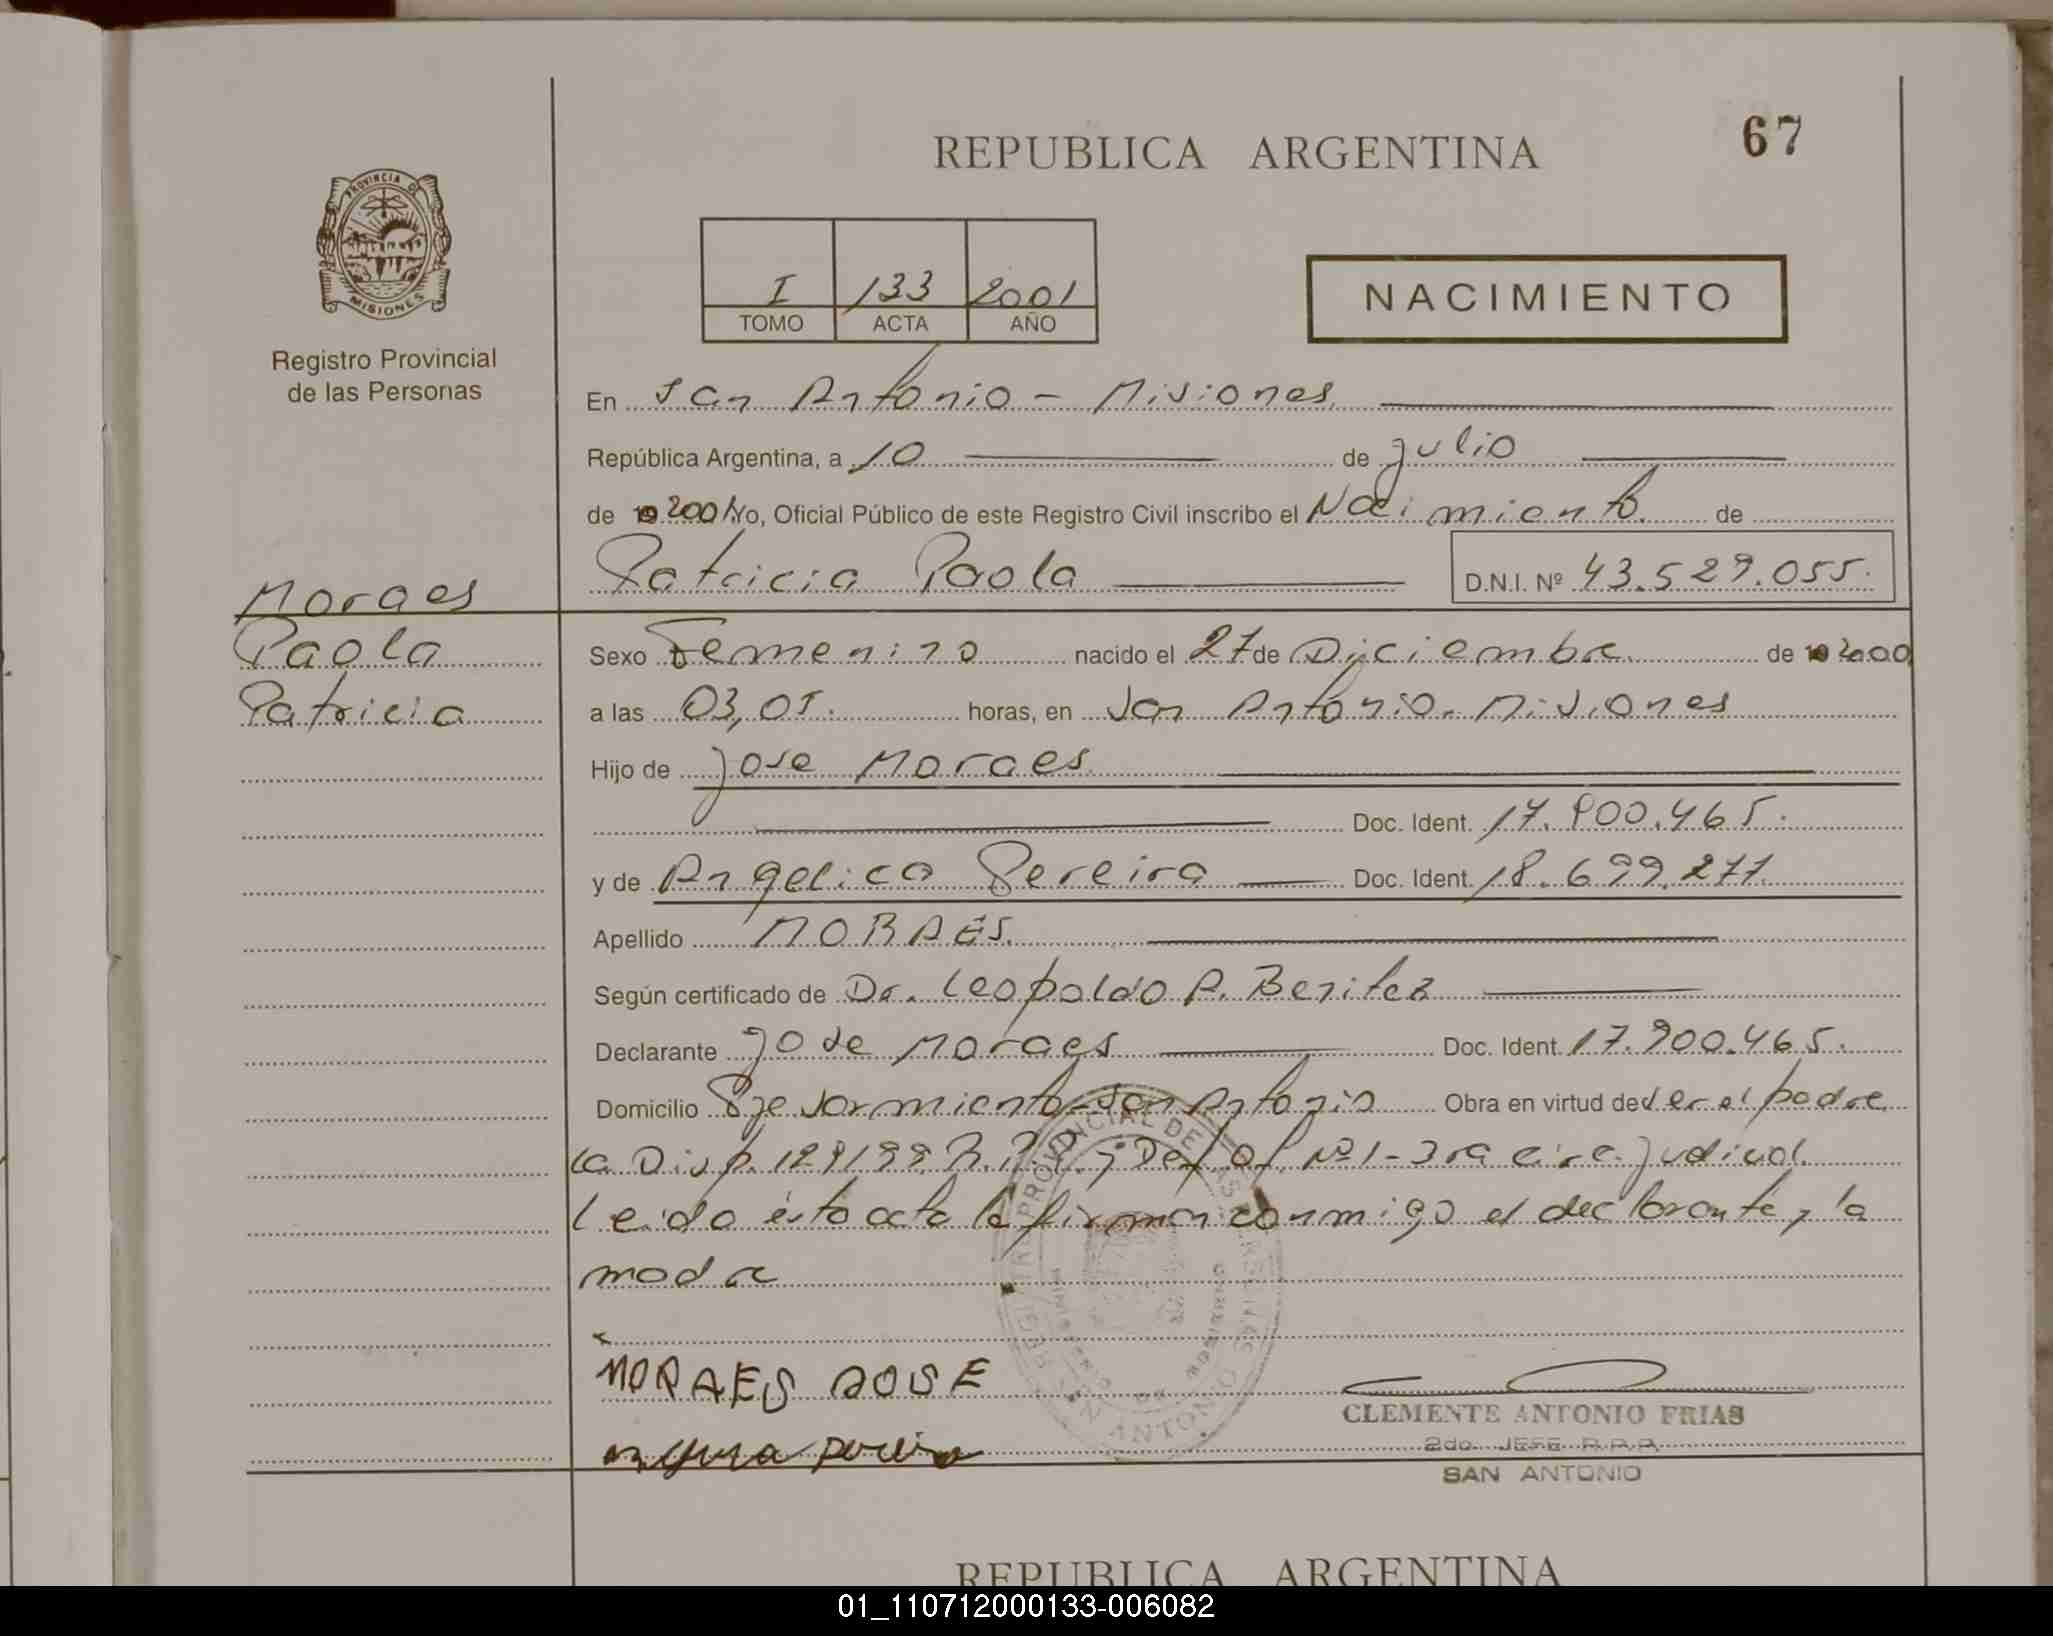 67
REPUBLICA ARGENTINA
PROVINCIA DE
MISIONES
Registro Provincial
de las Personas
I 133 2001
TOMO ACTA AÑO
NACIMIENTO
En San Antonio - Misiones
República Argentina, a 10 de julio
de 19 2001 Yo, Oficial Público de este Registro Civil inscribo el Nacimiento de
Patricia Paola D.N.I. Nº 43.529.055.
Moraes
Paola
Patricia
Sexo Femenino nacido el 27 de Diciembre de 19 2000
a las 03,05. horas, en San Antonio - Misiones
Hijo de Jose Moraes
Doc. Ident. 17.900.465.
y de Angelica Pereira Doc. Ident. 18.699.277.
Apellido MORAES
Según certificado de Dr. Leopoldo A. Benitez
Declarante Jose Moraes Doc. Ident. 17.900.465.
Domicilio San Antonio Obra en virtud de ser el padre
la Disp. y Def. Of. Nº 1 - 3ra circ. Judicial.
Leida ésta acta la firman conmigo el declarante y la
madre
MORAES JOSE
CLEMENTE ANTONIO FRIAS
2do. JEFE R.P.P.
SAN ANTONIO
REPUBLICA ARGENTINA
01_110712000133-006082